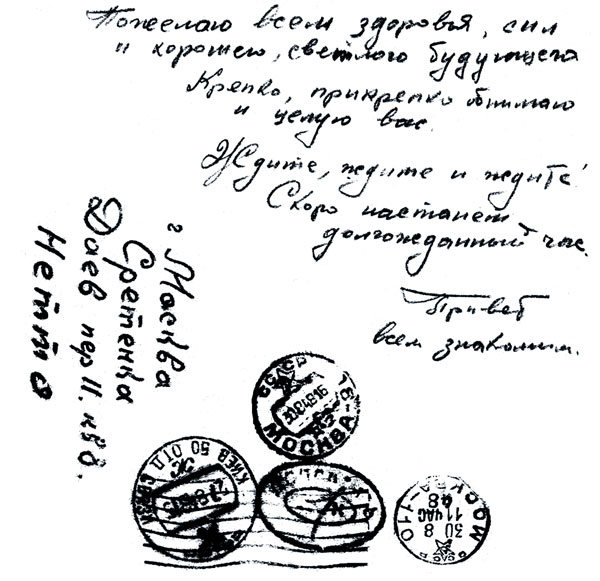 Пожелаю всем здоровья, сил
и хорошего, светлого будующего
Крепко, прикрепко обнимаю
и целую вас.
Ждите, ждите и ждите!
Скоро настанет
долгожданный час.
Привет
всем знакомым.
г Масква
Сретенка
Даев пер 11. кв 8.
Нетто
СССР
МОСКВА
30 8 48 16
КИЕВ 50 ОТД СВЯЗИ
27 8 48
МОСКВА
СССР
30 8
11 ЧАС
48